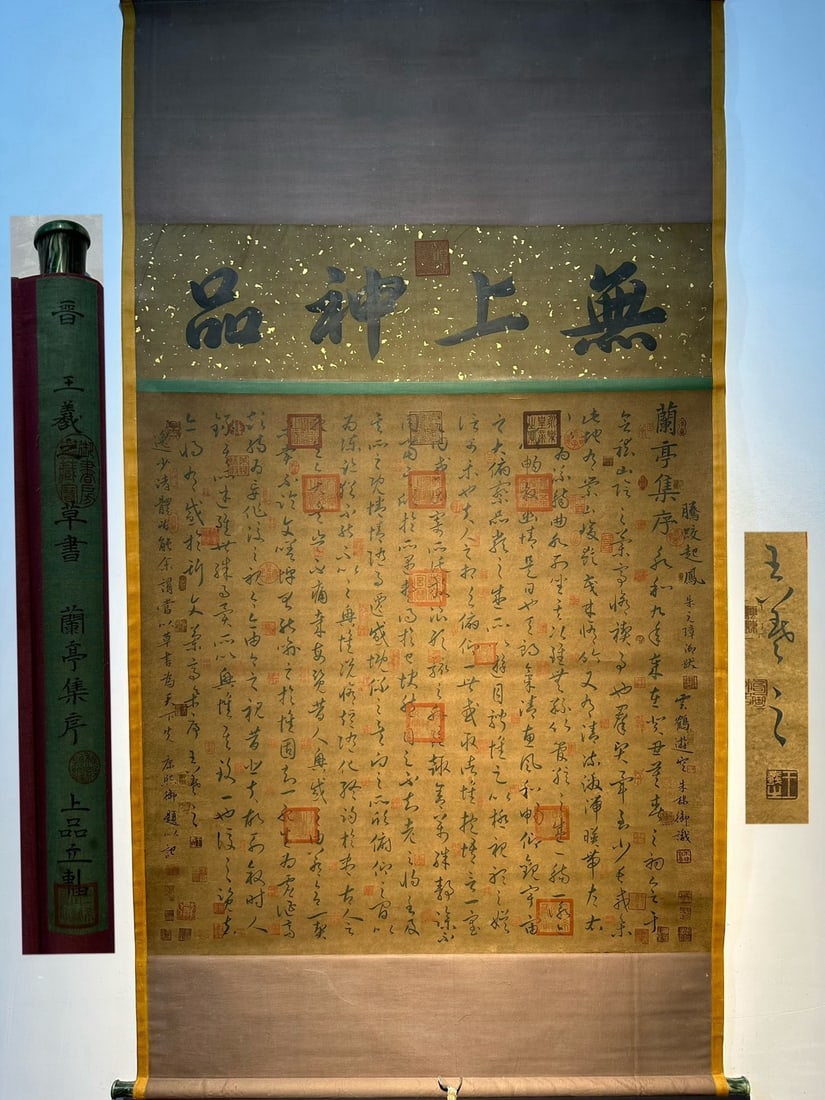 無上神品
騰蛟起鳳 朱元璋御跋
雲鶴遊空 朱棣御識
蘭亭集序 永和九年歲在癸丑暮春之初會于
會稽山陰之蘭亭脩禊事也羣賢畢至少長咸集
此地有崇山峻嶺茂林脩竹又有清流激湍映帶左右
為流觴曲水列坐其次雖無絲竹管絃之盛一觴一詠
暢敘幽情是日也天朗氣清惠風和暢仰觀宇宙
之大俯察品類之盛所以遊目騁懷足以極視聽之娛
信可樂也夫人之相與俯仰一世或取諸懷抱悟言一室
之內或因寄所託放浪形骸之外雖趣舍萬殊靜躁不
同當其欣於所遇暫得於己快然自足不知老之將至及
其所之既倦情隨事遷感慨係之矣向之所欣俯仰之間以
為陳迹猶不能不以之興懷況脩短隨化終期於盡古人云
死生亦大矣豈不痛哉每覽昔人興感之由若合一契
未嘗不臨文嗟悼不能喻之於懷固知一死生為虛誕齊
彭殤為妄作後之視今亦由今之視昔悲夫故列敘時人
錄其所述雖世殊事異所以興懷其致一也後之覽者
亦將有感於斯文 蘭亭集序 王羲之
逸少諸體皆能余謂當以草書為天下先 康熙御題以記
晋 王羲之草書 蘭亭集序 上品立軸
王羲之